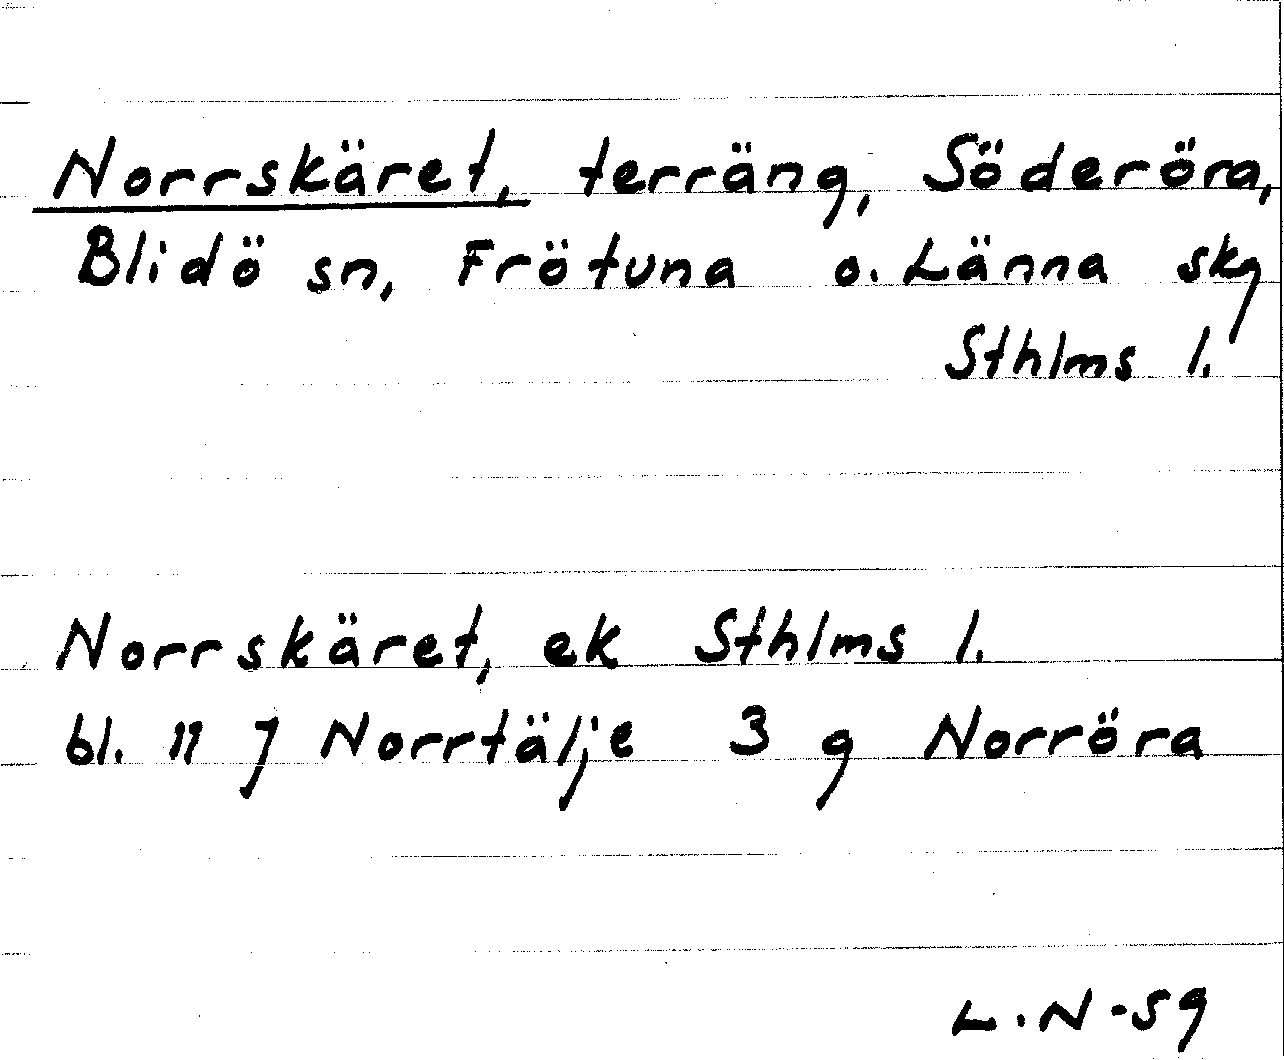 Norrskäret, terräng, Söderöra,
Blidö sn, Frötuna o. Länna skg
Sthlms l.
Norrskäret, ek Sthlms l.
bl. 11 J Norrtälje 3 g Norröra
L.N-sg